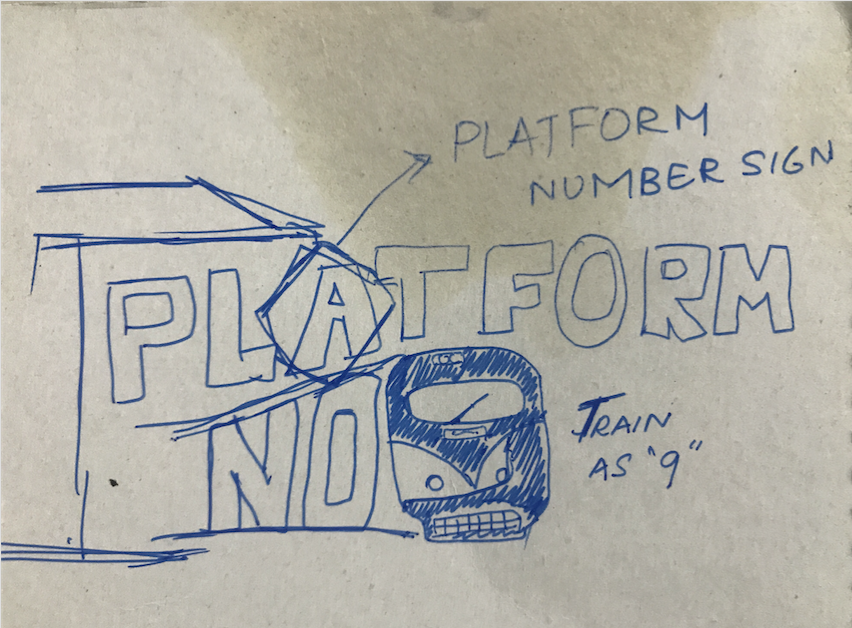 PLATFORM
NUMBER SIGN
PLATFORM
NO
TRAIN
AS "9"